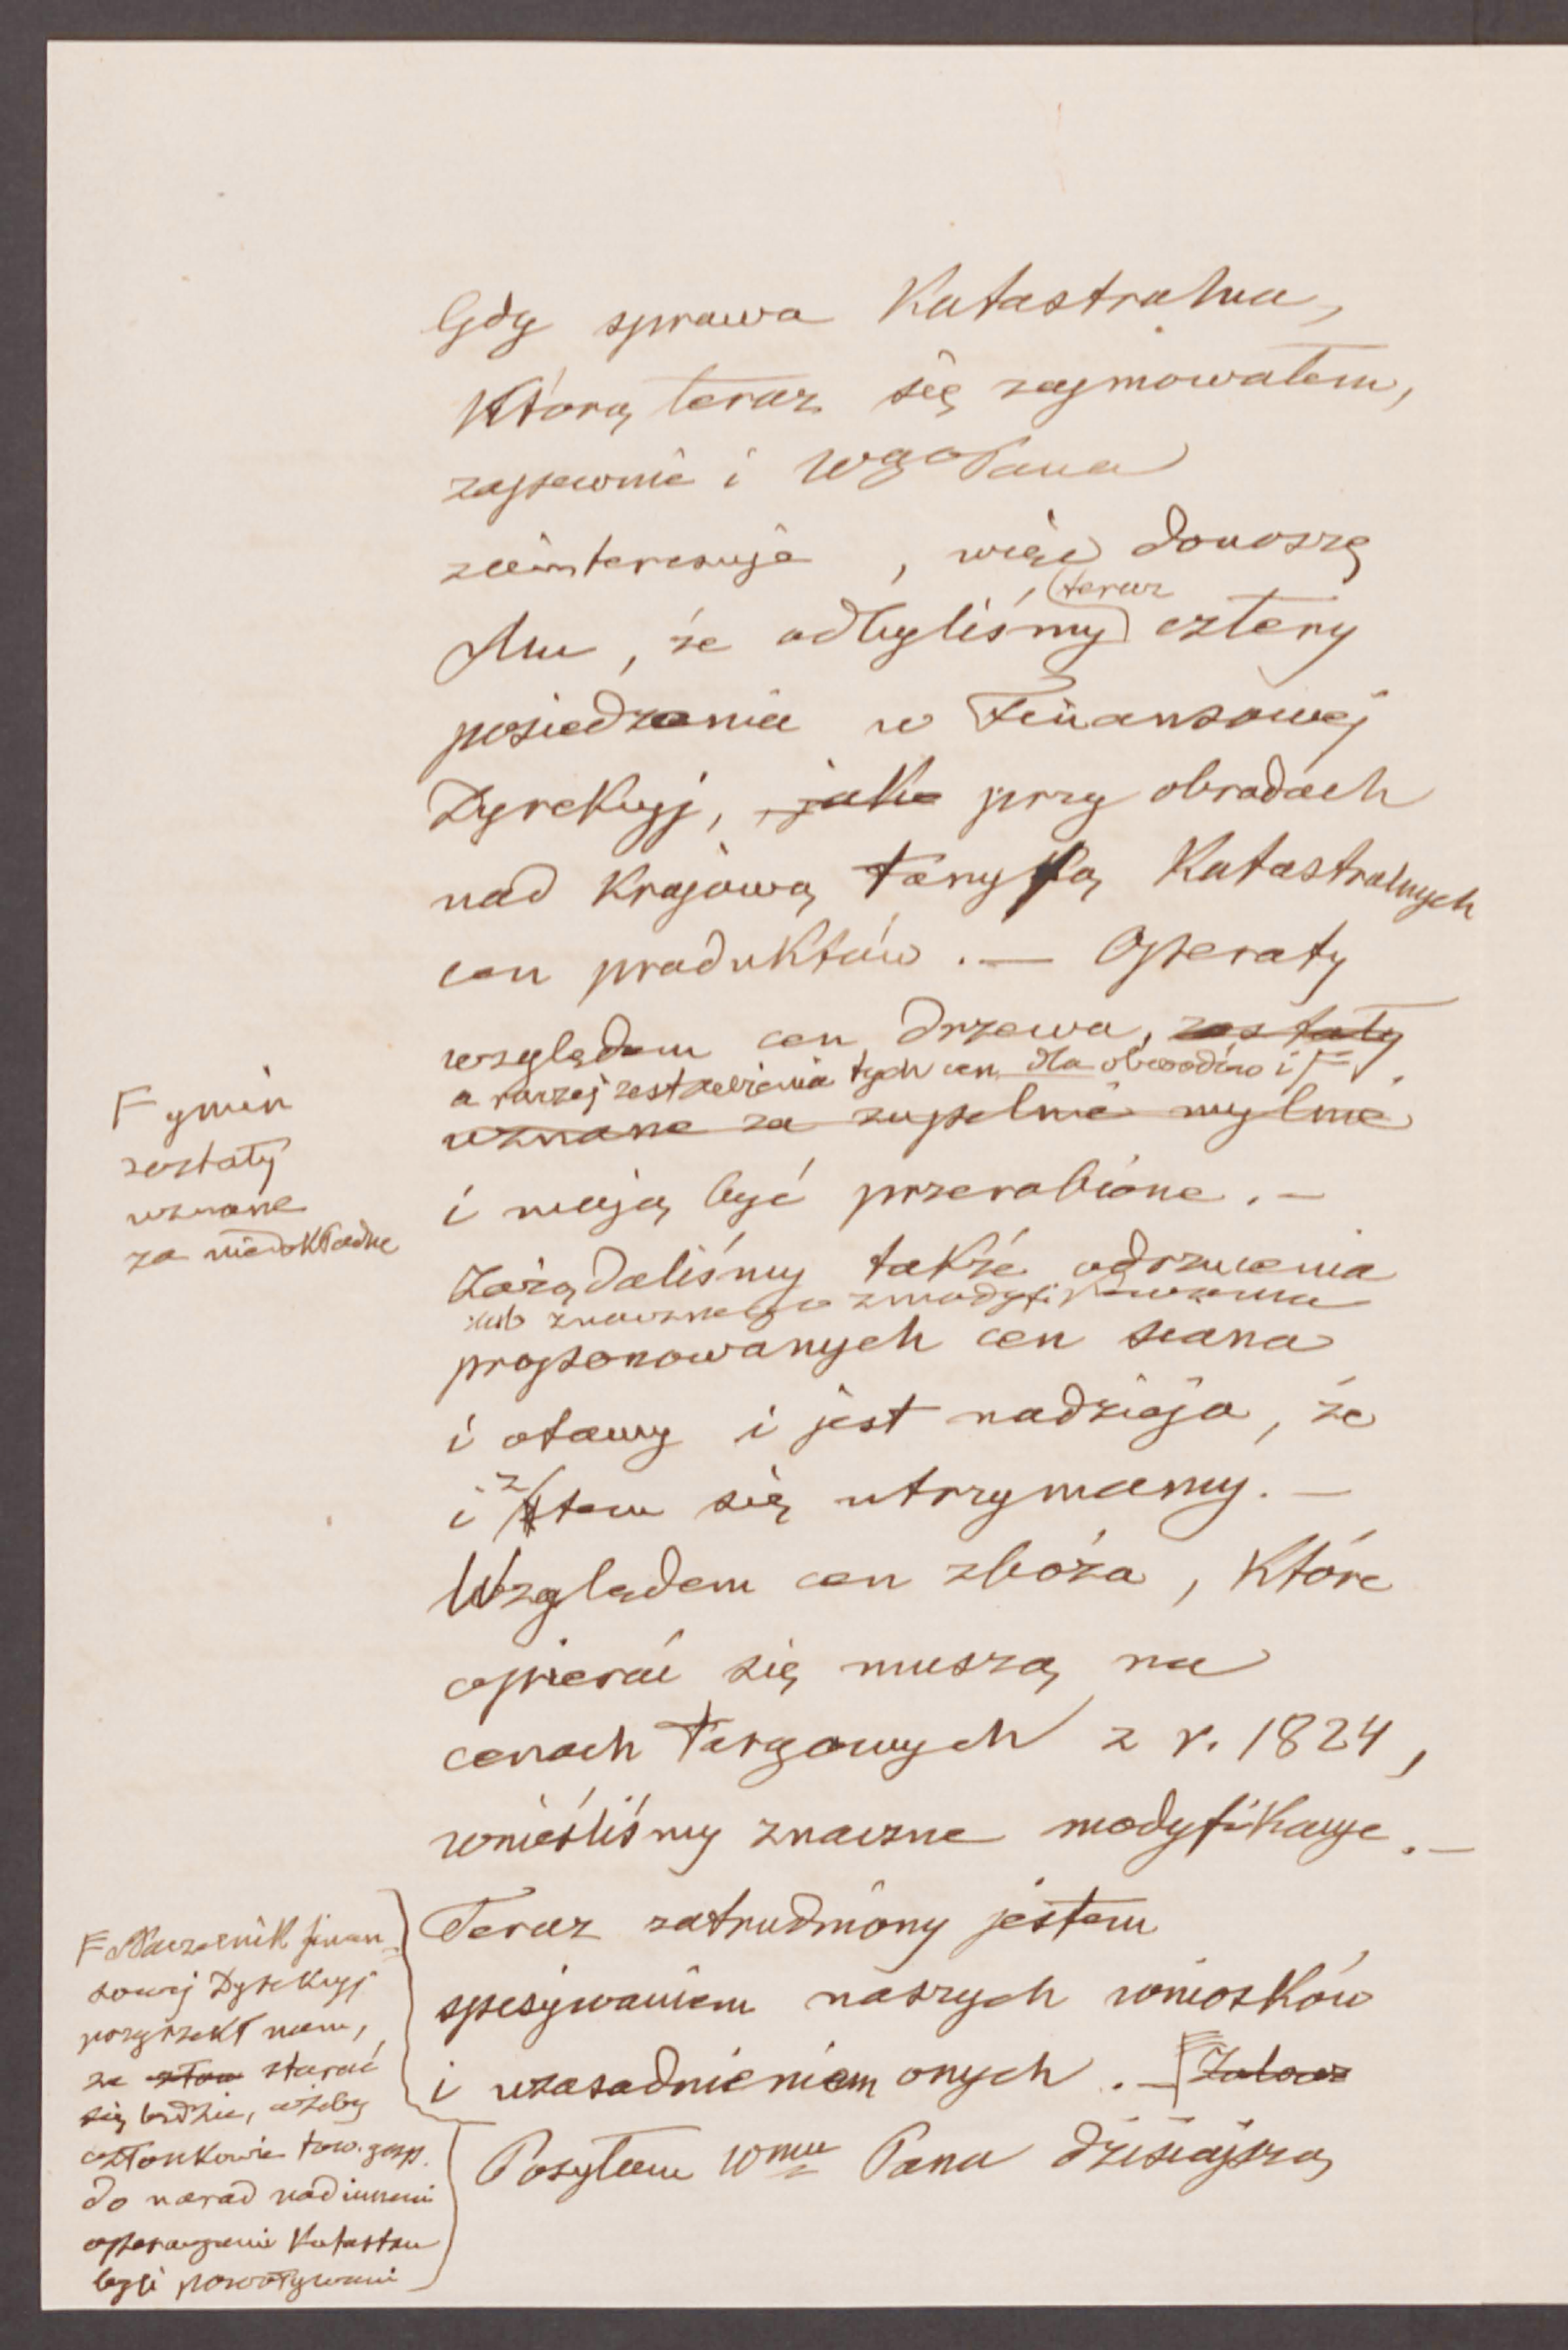 Gdy sprawa Katastralna,
Którą teraz się zajmowałem,
zapewnie i Wgo Pana
zainteresuje, więc donoszę
Mu, że odbyliśmy teraz cztery
posiedzenia w Finansowej
Dyrekcyj, jako przy obradach
nad Krajową taryfą Katastralnych
cen produktów. — Operaty
względem cen drzewa, zostały
a raczej zestawienia tych cen dla obwodów i F
uznane za zupełnie mylne
F gmin
zostały
uznane
za niedokładne
i mają być przerobione. —
Zażądaliśmy także odrzucenia
lub znacznego zmodyfikowania
proponowanych cen siana
i otawy i jest nadzieja, że
i z tem się utrzymamy. —
Względem cen zboża, które
opierać się muszą na
cenach targowych z r. 1824,
wnieśliśmy znaczne modyfikacye. —
Teraz zatrudniony jestem
spisywaniem naszych wniosków
i uzasadnieniem onych. —
F Naczelnik finan=
sowej Dyrekcyj
przyrzekł nam,
że starać
się będzie, ażeby
członkowie tow. gosp.
do narad nad innemi
operacyami Katastru
byli powoływani
Posyłam Wmu Panu dzisiejszą